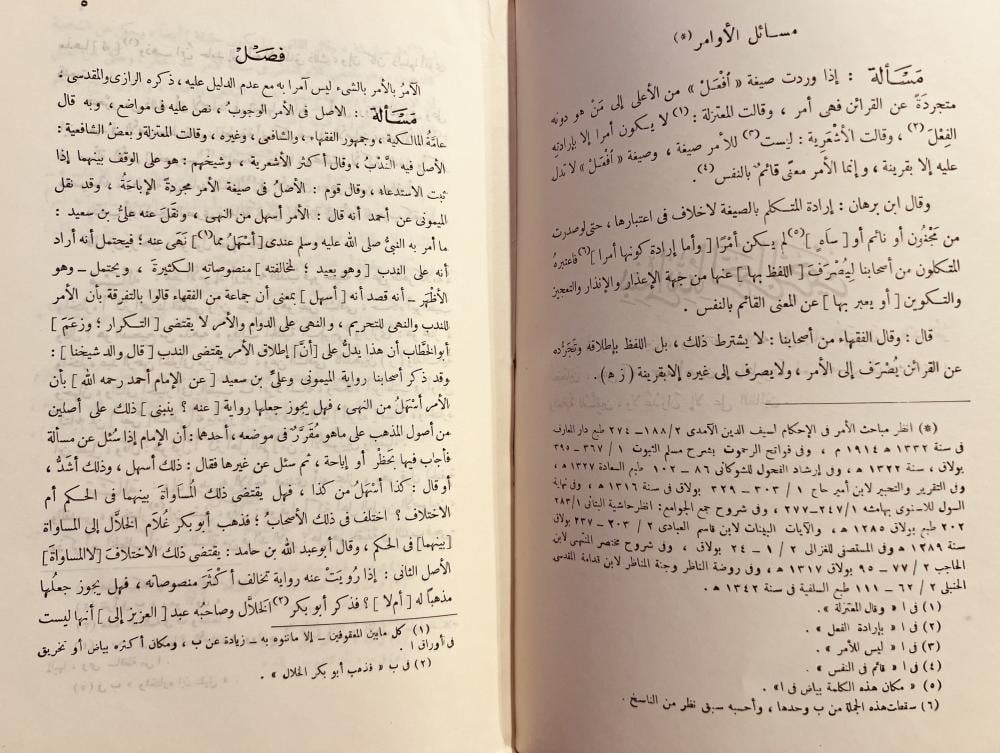 مسائل الأوامر (*)
مَسْأَلة : إذا وردت صيغة « افْعَلْ » من الأعلى إلى مَنْ هو دونه
متجردَةً عن القرائن فهى أمر ، وقالت المعتزلة : (١) لا يكون أمرا إلا بإرادتِه
الفِعْلَ (٢) ، وقالت الأشْعَرية : ليست (٣) للأمر صيغة ، وصيغة « افْعَلْ » لا تدل
عليه إلا بقرينة ، وإنما الأمر معنًى قائمٌ بالنفس (٤) .
وقال ابن برهان : إرادة المتكلم بالصيغة لاخلاف فى اعتبارها ، حتى لوصدرت
من مَجْنُون أو نائم أو [ ساهٍ ] (٥) لم يكن أمْرًا [ وأما إرادة كونها أمرا ] (٦) فاعتبرهُ
المتكلمون من أصحابنا لِيُصْرَفَ [ اللفظ بها ] عنها من جهة الإعذار والإنذار والتعجيز
والتكوين [ أو يعبر بها ] عن المعنى القائم بالنفس .
قال : وقال الفقهاء من أصحابنا : لا يشترط ذلك ، بل اللفظ بإطلاقه وتَجَرُّده
عن القرائن يُصْرَف إلى الأمر ، ولايصرف إلى غيره إلا بقرينة ( ز ه ) .
(*) انظر مباحث الأمر فى الإحكام لسيف الدين الآمدى ٢ /١٨٨ ــ ٢٧٤ طبع دار المعارف
فى سنة ١٣٣٢ ه ١٩١٤ م ، وفى فواتح الرحموت بشرح مسلم الثبوت ١ / ٣٦٧ ــ ٣٩٥
بولاق ، سنة ١٣٢٢ ه ، وفى إرشاد الفحول للشوكانى ٨٦ ــ ١٠٢ طبع السعادة ١٣٢٧ ه ،
وفى التقرير والتحبير لابن أمير حاج ١ / ٣٠٣ ــ ٣٢٩ بولاق فى سنة ١٣١٦ ه ، وفى نهاية
السول للاسنوى بهامشه ١ /٢٤٧ ــ ٢٧٧ ، وفى شروح جمع الجوامع : انظر حاشية البنانى ١ /٢٨٣
٢٠٢ طبع بولاق ١٢٨٥ ه ، والآيات البينات لابن قاسم العبادى ٢ / ٢٠٣ ــ ٢٣٧ بولاق
سنة ١٢٨٩ ه وفى المستصفى للغزالى ٢ / ١ ــ ٢٤ بولاق ، وفى شروح مختصر المنتهى لابن
الحاجب ٢ / ٧٧ ــ ٩٥ بولاق ١٣١٧ ه ، وفى روضة الناظر وجنة المناظر لابن قدامة المقدسى
الحنبلى ٢ / ٦٢ ــ ١١١ طبع السلفية فى سنة ١٣٤٢ ه .
(١) فى ا « وقال المعتزلة » .
(٢) فى ا « بإرادة الفعل » .
(٣) فى ا « ليس للأمر » .
(٤) فى ا « قائم فى النفس » .
(٥) « مكان هذه الكلمة بياض فى ا » .
(٦) سقطت هذه الجملة من ب وحدها ، وأحسبه سبق نظر من الناسخ .
٥
فصْلْ
الآمرُ بالأمر بالشىء ليس آمرا به مع عدم الدليل عليه ، ذكره الرازى والمقدسى .
مَسْأَلة : الاصل فى الأمر الوجوبُ ، نص عليه فى مواضع ، وبه قال
عامَّةُ المالكية ، وجمهور الفقهاء ، والشافعى ، وغيره ، وقالت المعتزلة وبعضُ الشافعية :
الأصل فيه النَّدْبُ ، وقال أكثر الأشعرية ، وشيخهم : هو على الوقف بينهما إذا
ثبت الاستدعاء ، وقال قوم : الأصلُ فى صيغة الأمر مجردةً الإباحَةُ ، وقد نقل
الميمونى عن أحمد أنه قال : الأمر أسهل من النهى ، ونقَلَ عنه علىُّ بن سعيد :
ما أمر به النبىُّ صلى الله عليه وسلم عندى [ أسْهَلُ مما (١) ] نَهَى عنه ؛ فيحتمل أنه أراد
أنه على الندب [ وهو بعيد ؛ لمخالفته ] منصوصاته الكثيرةَ ، ويحتمل ــ وهو
الأظْهَرـ أنه قصد أنه [ أسهل ] بمعنى أن جماعة من الفقهاء قالوا بالتفرقة بأن الأمر
للندب والنهى للتحريم ، والنهى على الدوام والأمر لا يقتضى [ التكرار ؛ وزعَمَ ]
أبوالخطَّاب أن هذا يدلُّ على [ أنَّ ] إطلاق الأمر يقتضى الندب [ قال والد شيخنا ] :
وقد ذكر أصحابنا رواية الميمونى وعلىِّ بن سعيد [ عن الإمام أحمد رحمه الله ] بأن
الأمر أسْهَلُ من النهى ، فهل يجوز جعلها رواية [ عنه ؟ ينبنى ] ذلك على أصلين
من أصول المذهب على ماهو مُقَرَّرٌ فى موضعه ، أحدهما : أن الإمام إذا سُئل عن مسألة
فأجاب فيها بحَظْر أو إباحة ، ثم سئل عن غيرها فقال : ذلك أسهل ، وذلك أشَدُّ ،
أوقال : كذا أسْهَلُ من كذا ، فهل يقتضى ذلك المُسَاواة بينهما فى الحكم أم
الاختلاف ؟ اختلف فى ذلك الأصحابُ ؛ فذهب أبو بكر غُلَام الخلَّال إلى المساواة
[ بينهما ] فى الحكم ، وقال أبوعبد الله بن حامد : يقتضى ذلك الاختلافَ [ لاالمساواةَ ]
الأصل الثانى : إذا رُويَتْ عنه رواية تخالف أكْثَرَ منصوصاته ، فهل يجوز جعلُها
مذهباً له [ أم لا ] ؟ فذكر أبو بكر (٢) الخلَّال وصاحبُه عبد [ العزيز إلى ] أنها ليست
(١) كل مابين المعقوفين ــ إلا ماننوه به ــ زيادة عن ب ، ومكان أكثره بياض أو تخريق
فى أوراق ا .
(٢) فى ب « فذهب أبو بكر الخلال » .